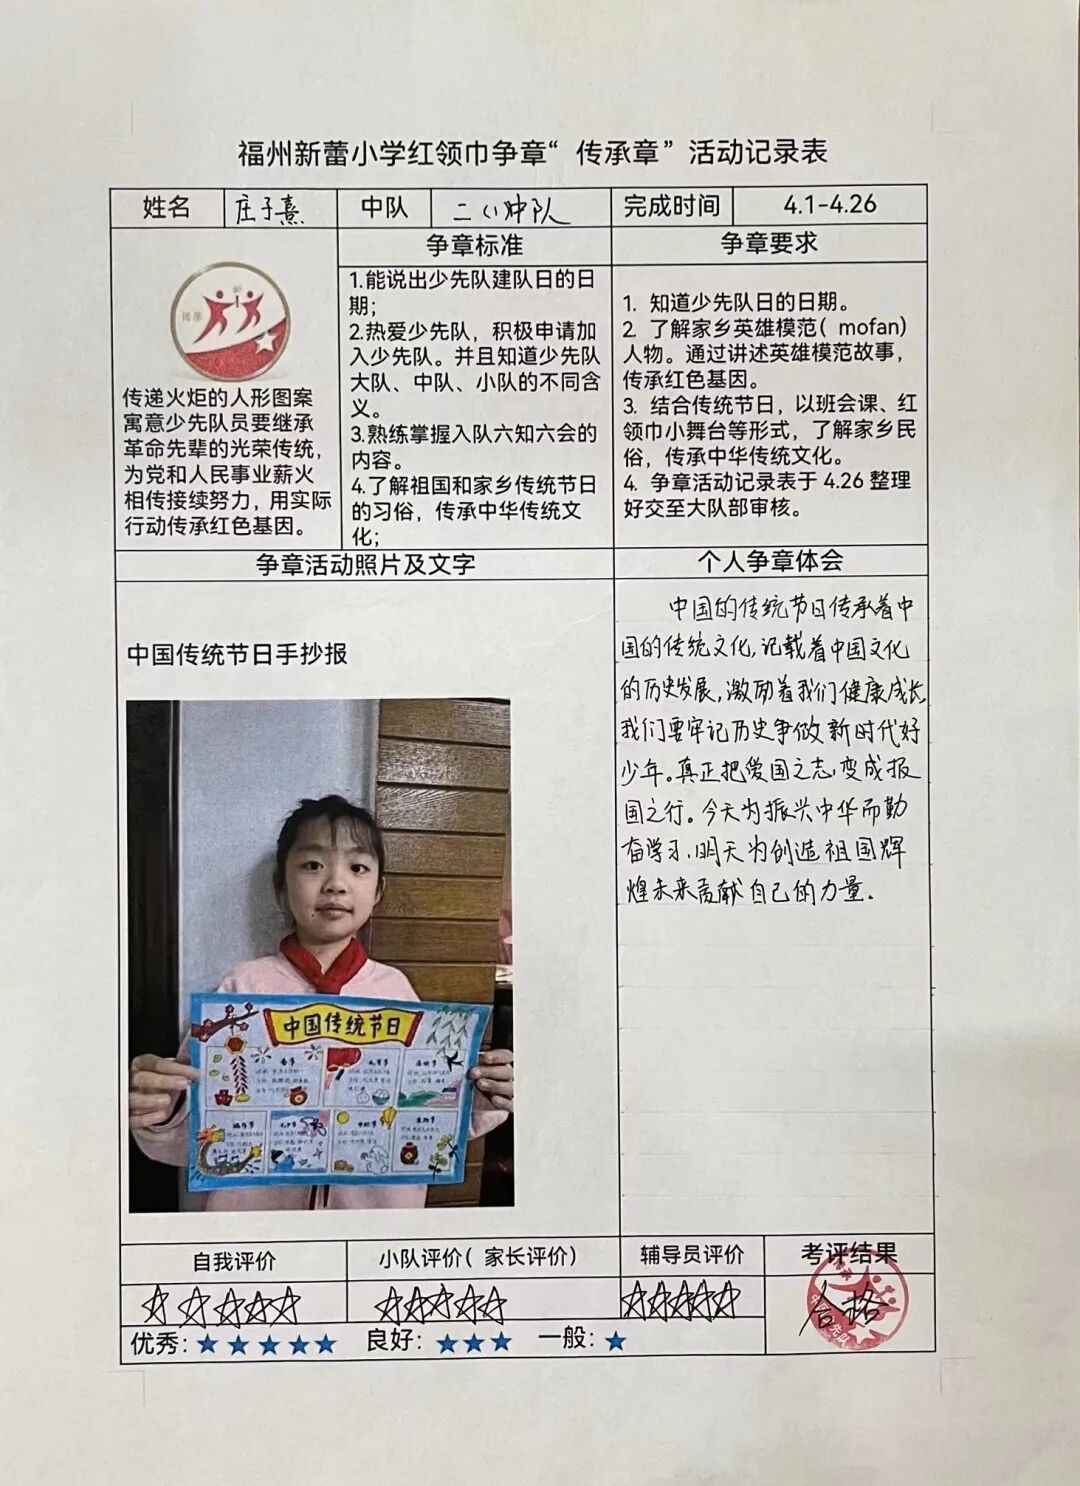 福州新蕾小学红领巾争章“传承章”活动记录表
姓名 庄子熹 中队 二(1)中队 完成时间 4.1-4.26
争章标准 争章要求
传承
传递火炬的人形图案
寓意少先队员要继承
革命先辈的光荣传统，
为党和人民事业薪火
相传接续努力，用实际
行动传承红色基因。
1.能说出少先队建队日的日
期；
2.热爱少先队，积极申请加
入少先队。并且知道少先队
大队、中队、小队的不同含
义。
3.熟练掌握入队六知六会的
内容。
4.了解祖国和家乡传统节日
的习俗，传承中华传统文
化；
1. 知道少先队日的日期。
2. 了解家乡英雄模范( mofan)
人物。通过讲述英雄模范故事，
传承红色基因。
3. 结合传统节日，以班会课、红
领巾小舞台等形式，了解家乡民
俗，传承中华传统文化。
4. 争章活动记录表于 4.26 整理
好交至大队部审核。
争章活动照片及文字 个人争章体会
中国传统节日手抄报
中国传统节日
春节
元宵节
清明节
端午节
中秋节
重阳节
中国的传统节日传承着中
国的传统文化,记载着中国文化
的历史发展,激励着我们健康成长,
我们要牢记历史争做新时代好
少年。真正把爱国之志,变成报
国之行。今天为振兴中华而勤
奋学习,明天为创造祖国辉
煌未来贡献自己的力量.
自我评价 小队评价( 家长评价) 辅导员评价 考评结果
☆☆☆☆☆ ☆☆☆☆☆ ☆☆☆☆☆ 合格
优秀：★★★★★ 良好：★★★ 一般：★
中国少先队